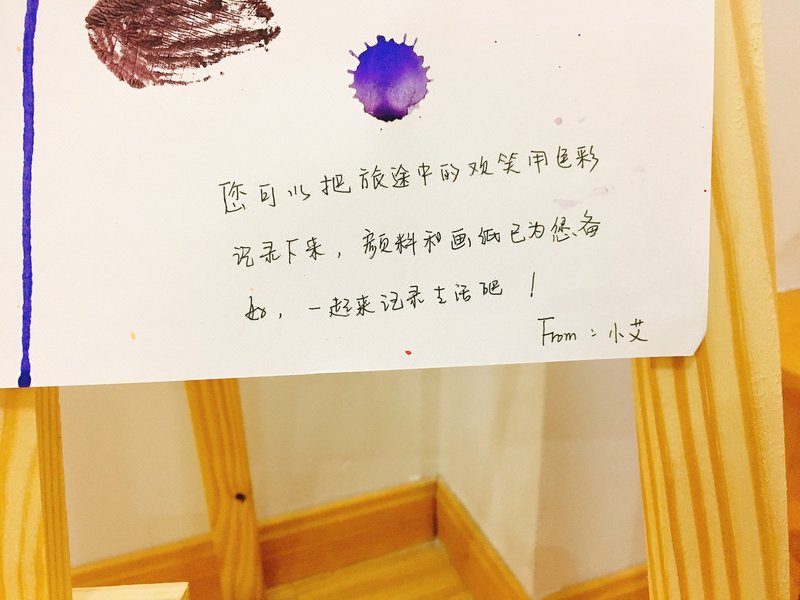 您可以把旅途中的欢笑用色彩
记录下来，颜料和画纸已为您备
好，一起来记录生活吧！
From：小艾